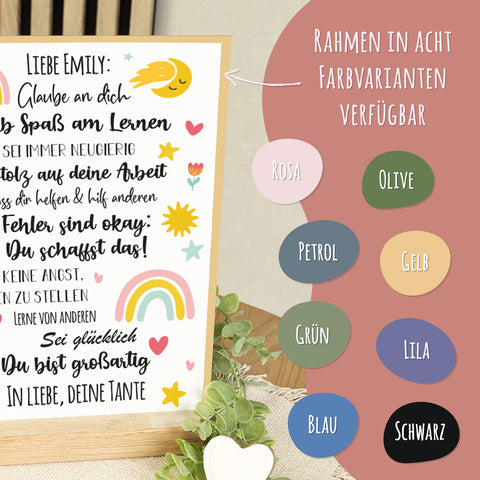 LIEBE EMILY:
Glaube an dich
b Spaß am Lernen
SEI IMMER NEUGIERIG
tolz auf deine Arbeit
ss dir helfen & hilf anderen
Fehler sind okay:
Du schaffst das!
KEINE ANGST,
EN ZU STELLEN
LERNE VON ANDEREN
Sei glücklich
Du bist großartig
IN LIEBE, DEINE TANTE
RAHMEN IN ACHT
FARBVARIANTEN
VERFÜGBAR
ROSA
OLIVE
PETROL
GELB
GRÜN
LILA
BLAU
SCHWARZ